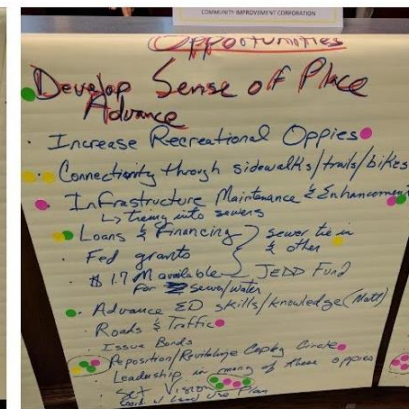 COMMUNITY IMPROVEMENT CORPORATION
Oppootunities
Develop Sense of Place
Advance
· Increase Recreational Oppies
· Connectivity through sidewalks/trails/bikes
· Infrastructure Maintenance & Enhancement
↳ tieing into sewers
· Loans & Financing sewer tie in
· Fed grants & other
· $ 1.7M available JEDD Fund
for sewer/water
· Advance ED skills/knowledge (Matt)
· Roads & Traffic
· Issue Bonds
· Reposition/Revitalize Copley Circle
· Leadership in many of these oppies
· Set Vision
Land Use Plan